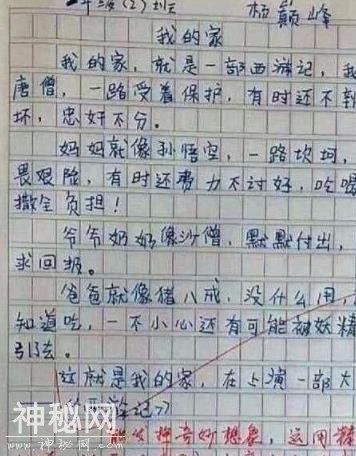 年级(2)班 杨巅峰
我的家
我的家，就是一部西游记，我
唐僧，一路受着保护，有时还不
坏，忠奸不分。
妈妈就像孙悟空，一路坎坷，
畏艰险，有时还费力不讨好，吃喝
撒全负担！
爷爷奶奶像沙僧，默默付出，
求回报。
爸爸就像猪八戒，没什么用，
知道吃，一不小心还有可能被妖精
引去。
这就是我的家，在上演一部大
游记》
神秘网
WWW.SMW.CC
发挥奇妙想象，运用